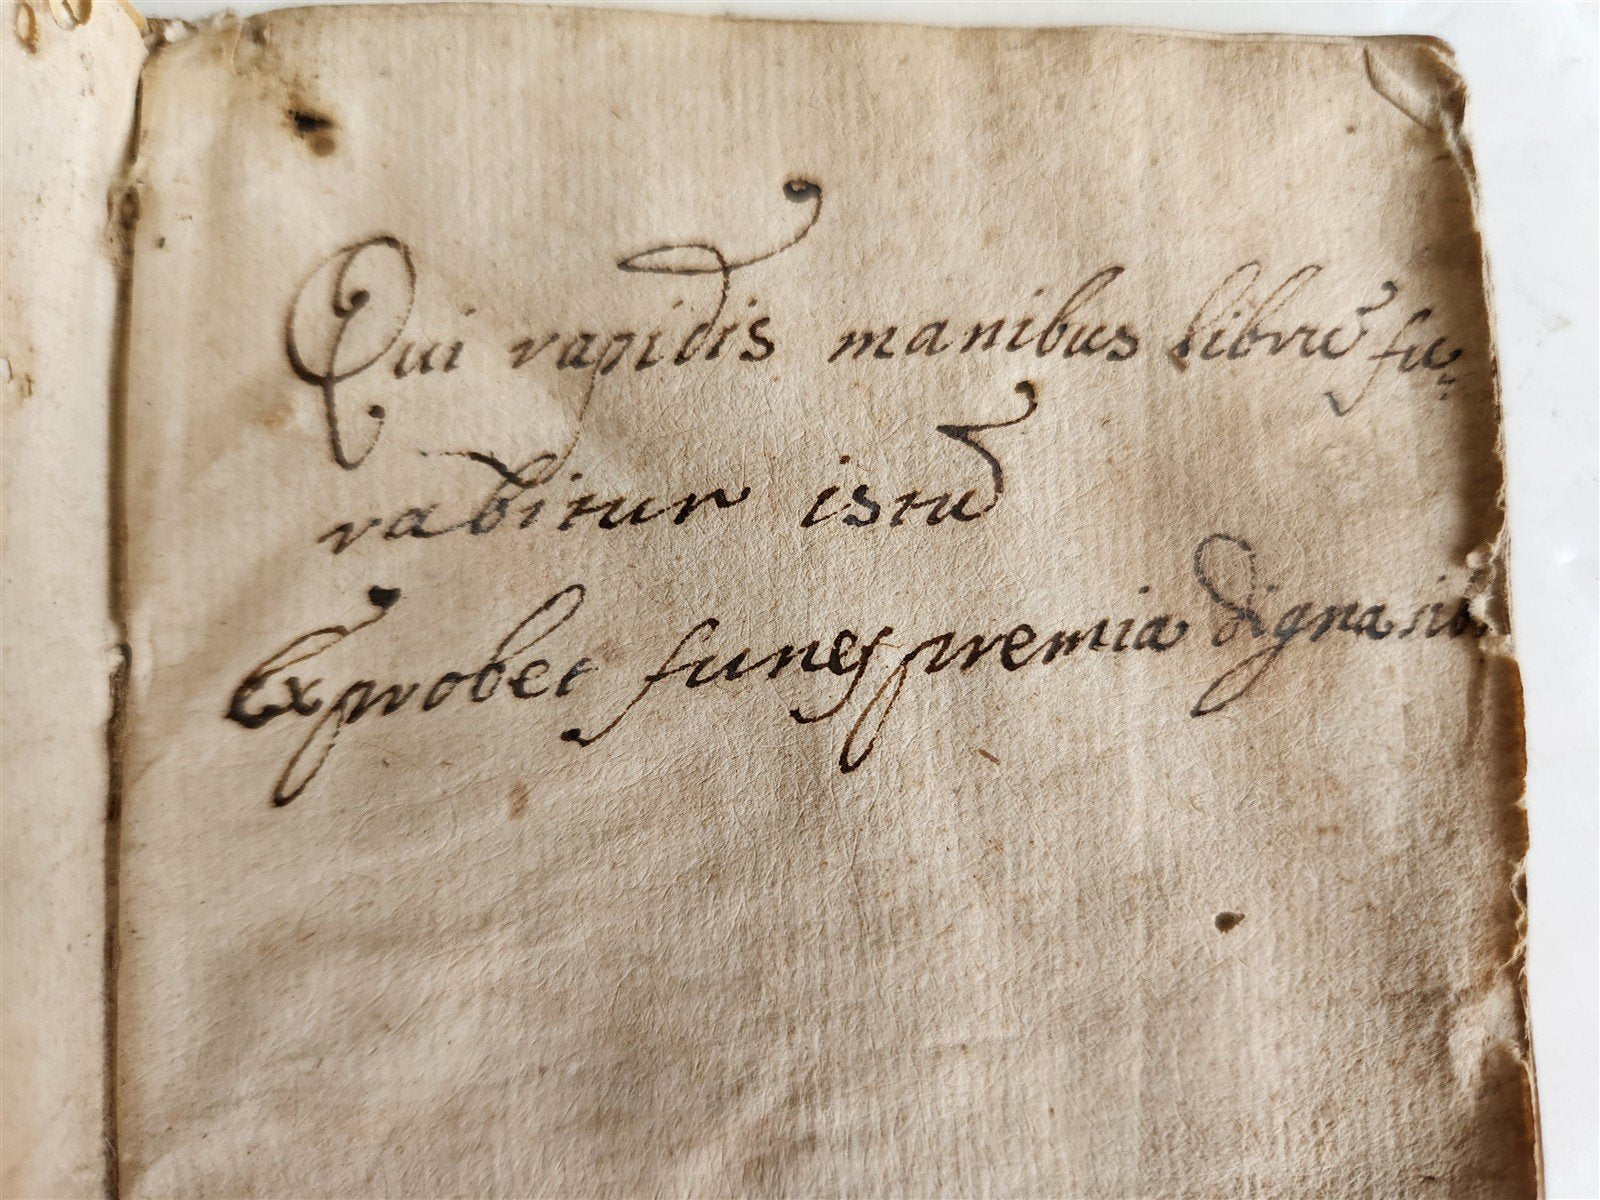 Qui rapidis manibus librũ fu-
rabitur istũ
Exprobet funes premia digna sib